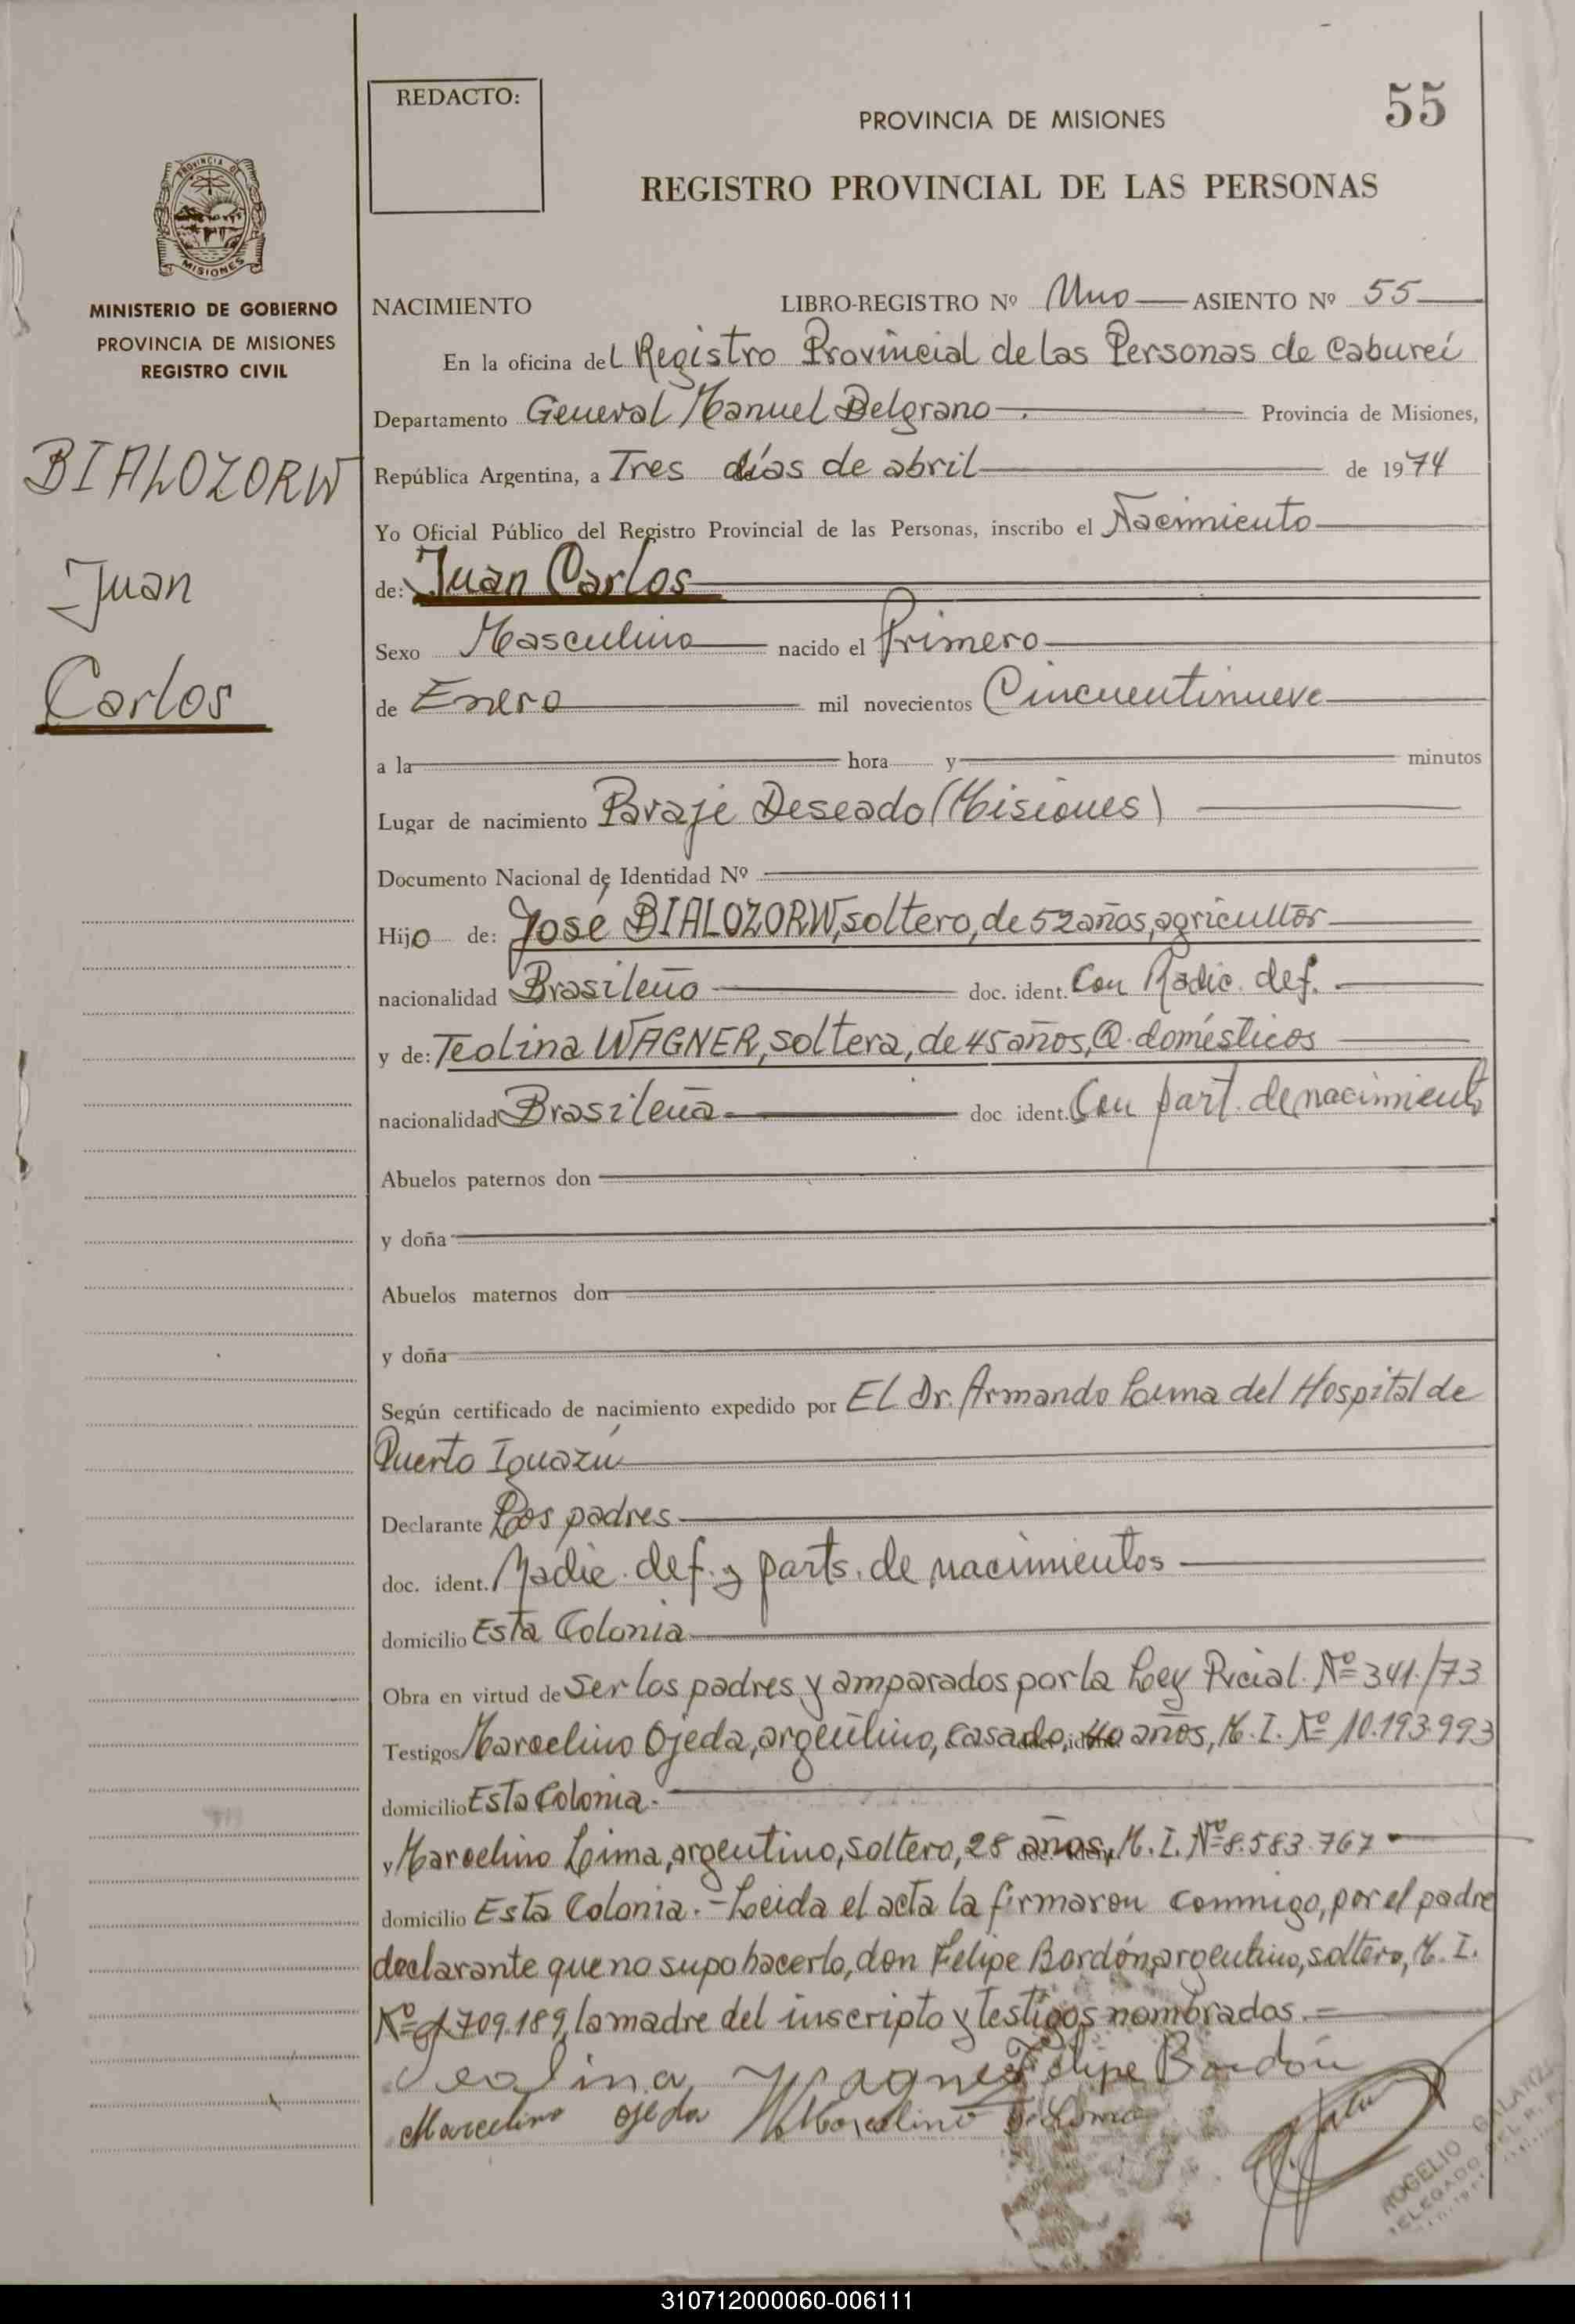 REDACTO:
PROVINCIA DE MISIONES
55
REGISTRO PROVINCIAL DE LAS PERSONAS
PROVINCIA DE
MISIONES
MINISTERIO DE GOBIERNO
PROVINCIA DE MISIONES
REGISTRO CIVIL
BIALOZORW
Juan
Carlos
NACIMIENTO LIBRO-REGISTRO Nº Uno ASIENTO Nº 55
En la oficina del Registro Provincial de las Personas de Caburei
Departamento General Manuel Belgrano Provincia de Misiones,
República Argentina, a Tres días de abril de 1974
Yo Oficial Público del Registro Provincial de las Personas, inscribo el Nacimiento
de: Juan Carlos
Sexo Masculino nacido el Primero
de Enero mil novecientos Cincuentinueve
a la hora y minutos
Lugar de nacimiento Paraje Deseado (Misiones)
Documento Nacional de Identidad Nº
Hijo de: José BIALOZORW, soltero, de 52 años, agricultor
nacionalidad Brasileño doc. ident. Con Radic. def.
y de: Teolina WAGNER, soltera, de 45 años, Q. domésticos
nacionalidad Brasileña doc ident. Con part. de nacimiento
Abuelos paternos don
y doña
Abuelos maternos don
y doña
Según certificado de nacimiento expedido por El Dr. Armando Luma del Hospital de
Puerto Iguazú
Declarante Los padres
doc. ident. Radic. def. y parts. de nacimientos
domicilio Esta Colonia
Obra en virtud de Ser los padres y amparados por la Ley Pcial. Nº 341./73
Testigos Marcelino Ojeda, argentino, casado, 40 años, M. I. Nº 10.193.993
domicilio Esta Colonia.
y Marcelino Lima, argentino, soltero, 28 años, M. I. Nº 8.583.767
domicilio Esta Colonia.- Leida el acta la firmaron conmigo, por el padre
declarante que no supo hacerlo, don Felipe Bordón, argentino, soltero, M. I.
Nº 1709.189, la madre del inscripto y testigos nombrados.=
Teolina Wagner Felipe Bordón
Marcelino Ojeda Marcelino Lima
ROGELIO GALARZA
DELEGADO DEL R. P.
310712000060-006111